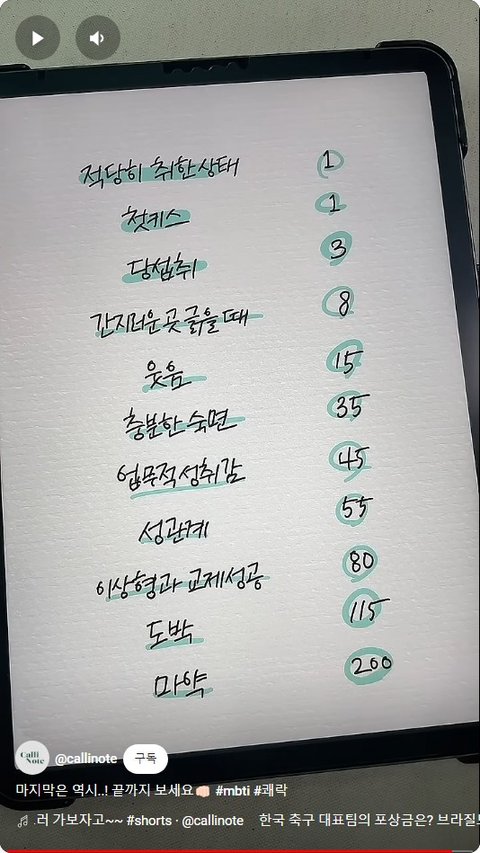 적당히 취한상태 1
첫키스 1
당섭취 3
간지러운곳 긁을때 8
웃음 15
충분한 숙면 35
업무적성취감 45
성관계 55
이상형과 교제성공 80
도박 115
마약 200
Calli Note @callinote 구독
마지막은 역시..! 끝까지 보세요👊🏻 #mbti #쾌락
.러 가보자고~~ #shorts · @callinote 한국 축구 대표팀의 포상금은? 브라질